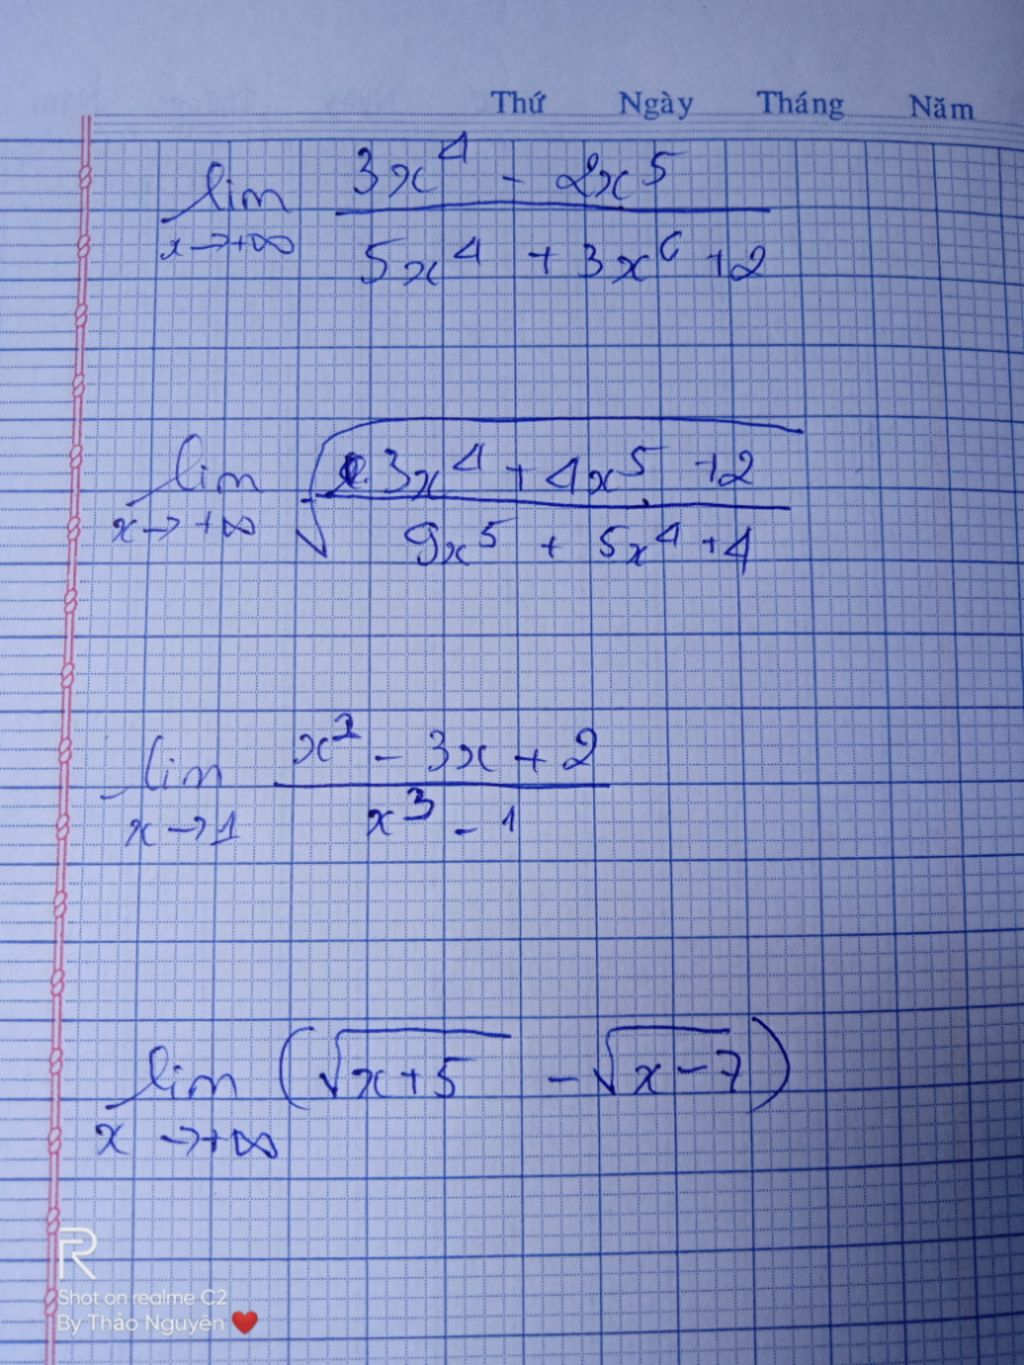 Thứ Ngày Tháng Năm
lim 3x⁴ - 2x⁵
x→+∞ 5x⁴ + 3x⁶ +2
lim √ 3x⁴ + 4x⁵ +2
x→+∞ 9x⁵ + 5x⁴ +4
lim x² - 3x + 2
x→1 x³ - 1
lim (√x+5 - √x-7)
x →+∞
R
Shot on realme C2
By Thảo Nguyên ❤️